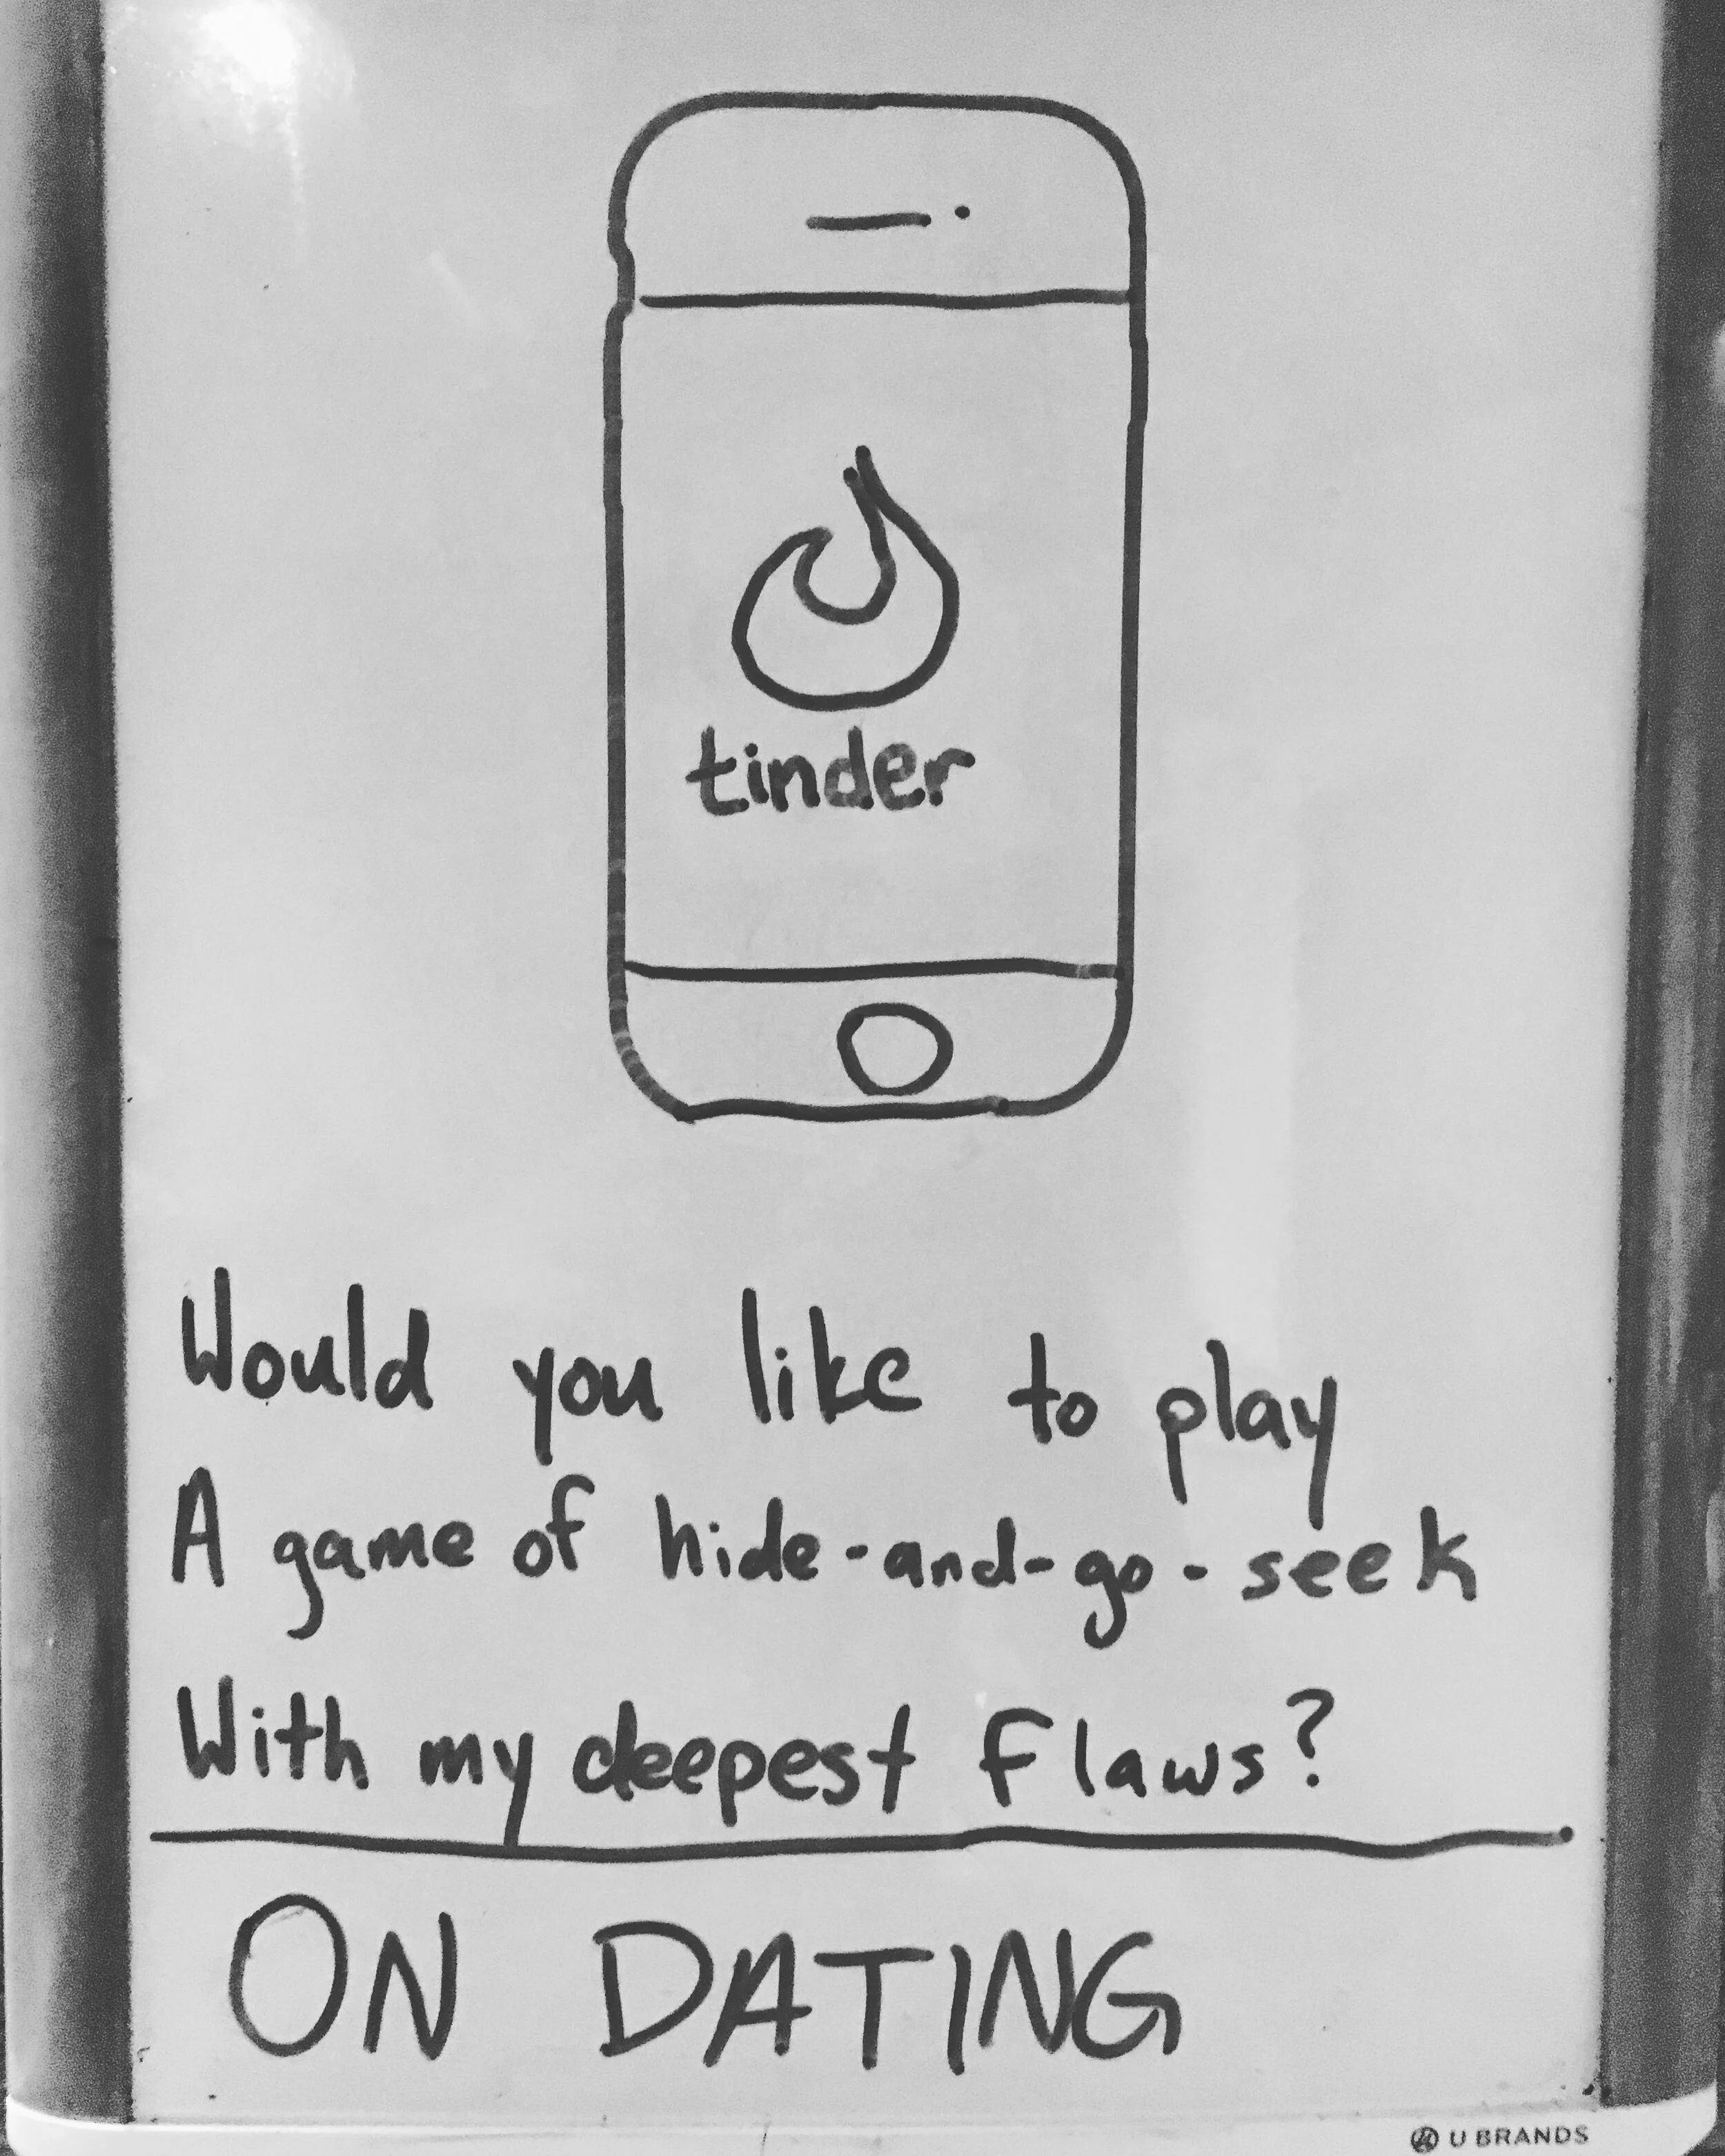 tinder
Would you like to play
A game of hide-and-go-seek
With my deepest flaws?
ON DATING
U BRANDS